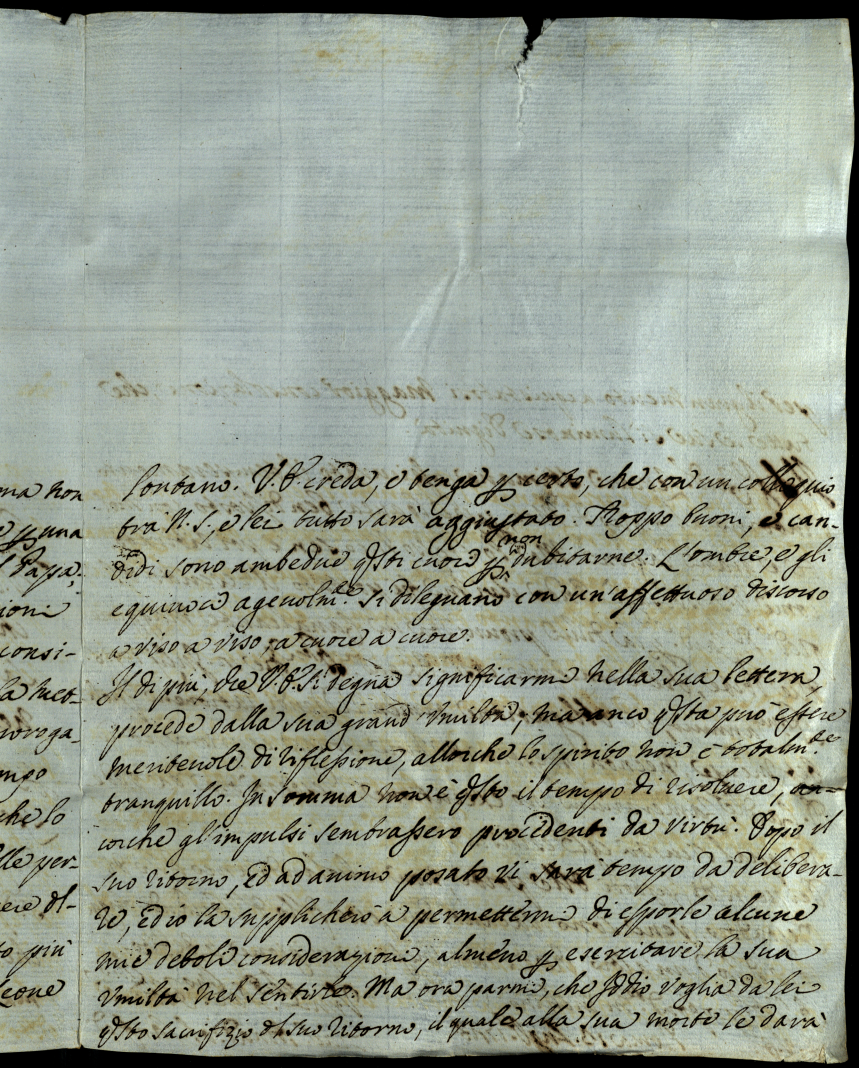 ma non
e p una
l Papa.
ioni
consi-
la met-
roroga-
mpo
che lo
lle per-
ere dl-
to più
Leone
lontano. V.E. creda, e tenga p certo, che con un colloquio
trà N.S., e lei tutto sarà aggiustato. Troppo buoni, e can-
didi sono ambedue qsti cuori p non dubitarne. L'ombre, e gli
equivoci agevolmte si dileguano con un'affettuoso discorso
a viso a viso, a cuore a cuore.
Il di più, che V.E. si degna significarmi nella sua lettera,
procede dalla sua grand'umiltà; ma anco qsta può essere
meritevole di riflessione, allorche lo spirito non è totalmte
tranquillo. In somma non è qsto il tempo di risolvere, an-
corche gl'impulsi sembrassero procedenti da virtù. Dopo il
suo ritorno, ed ad animo posato vi sarà tempo da delibera-
re, ed io la supplicherò a permettermi di esporle alcune
mie deboli considerazioni, almeno p esercitare la sua
umiltà nel sentirle. Ma ora parmi, che Iddio voglia da lei
qsto sacrifizio dl suo ritorno, il quale alla sua morte le darà